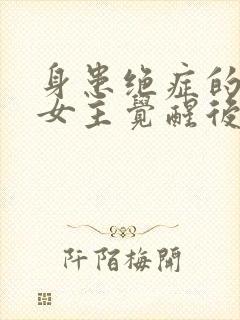 身患绝症的
女主覺醒後
阡陌梅開